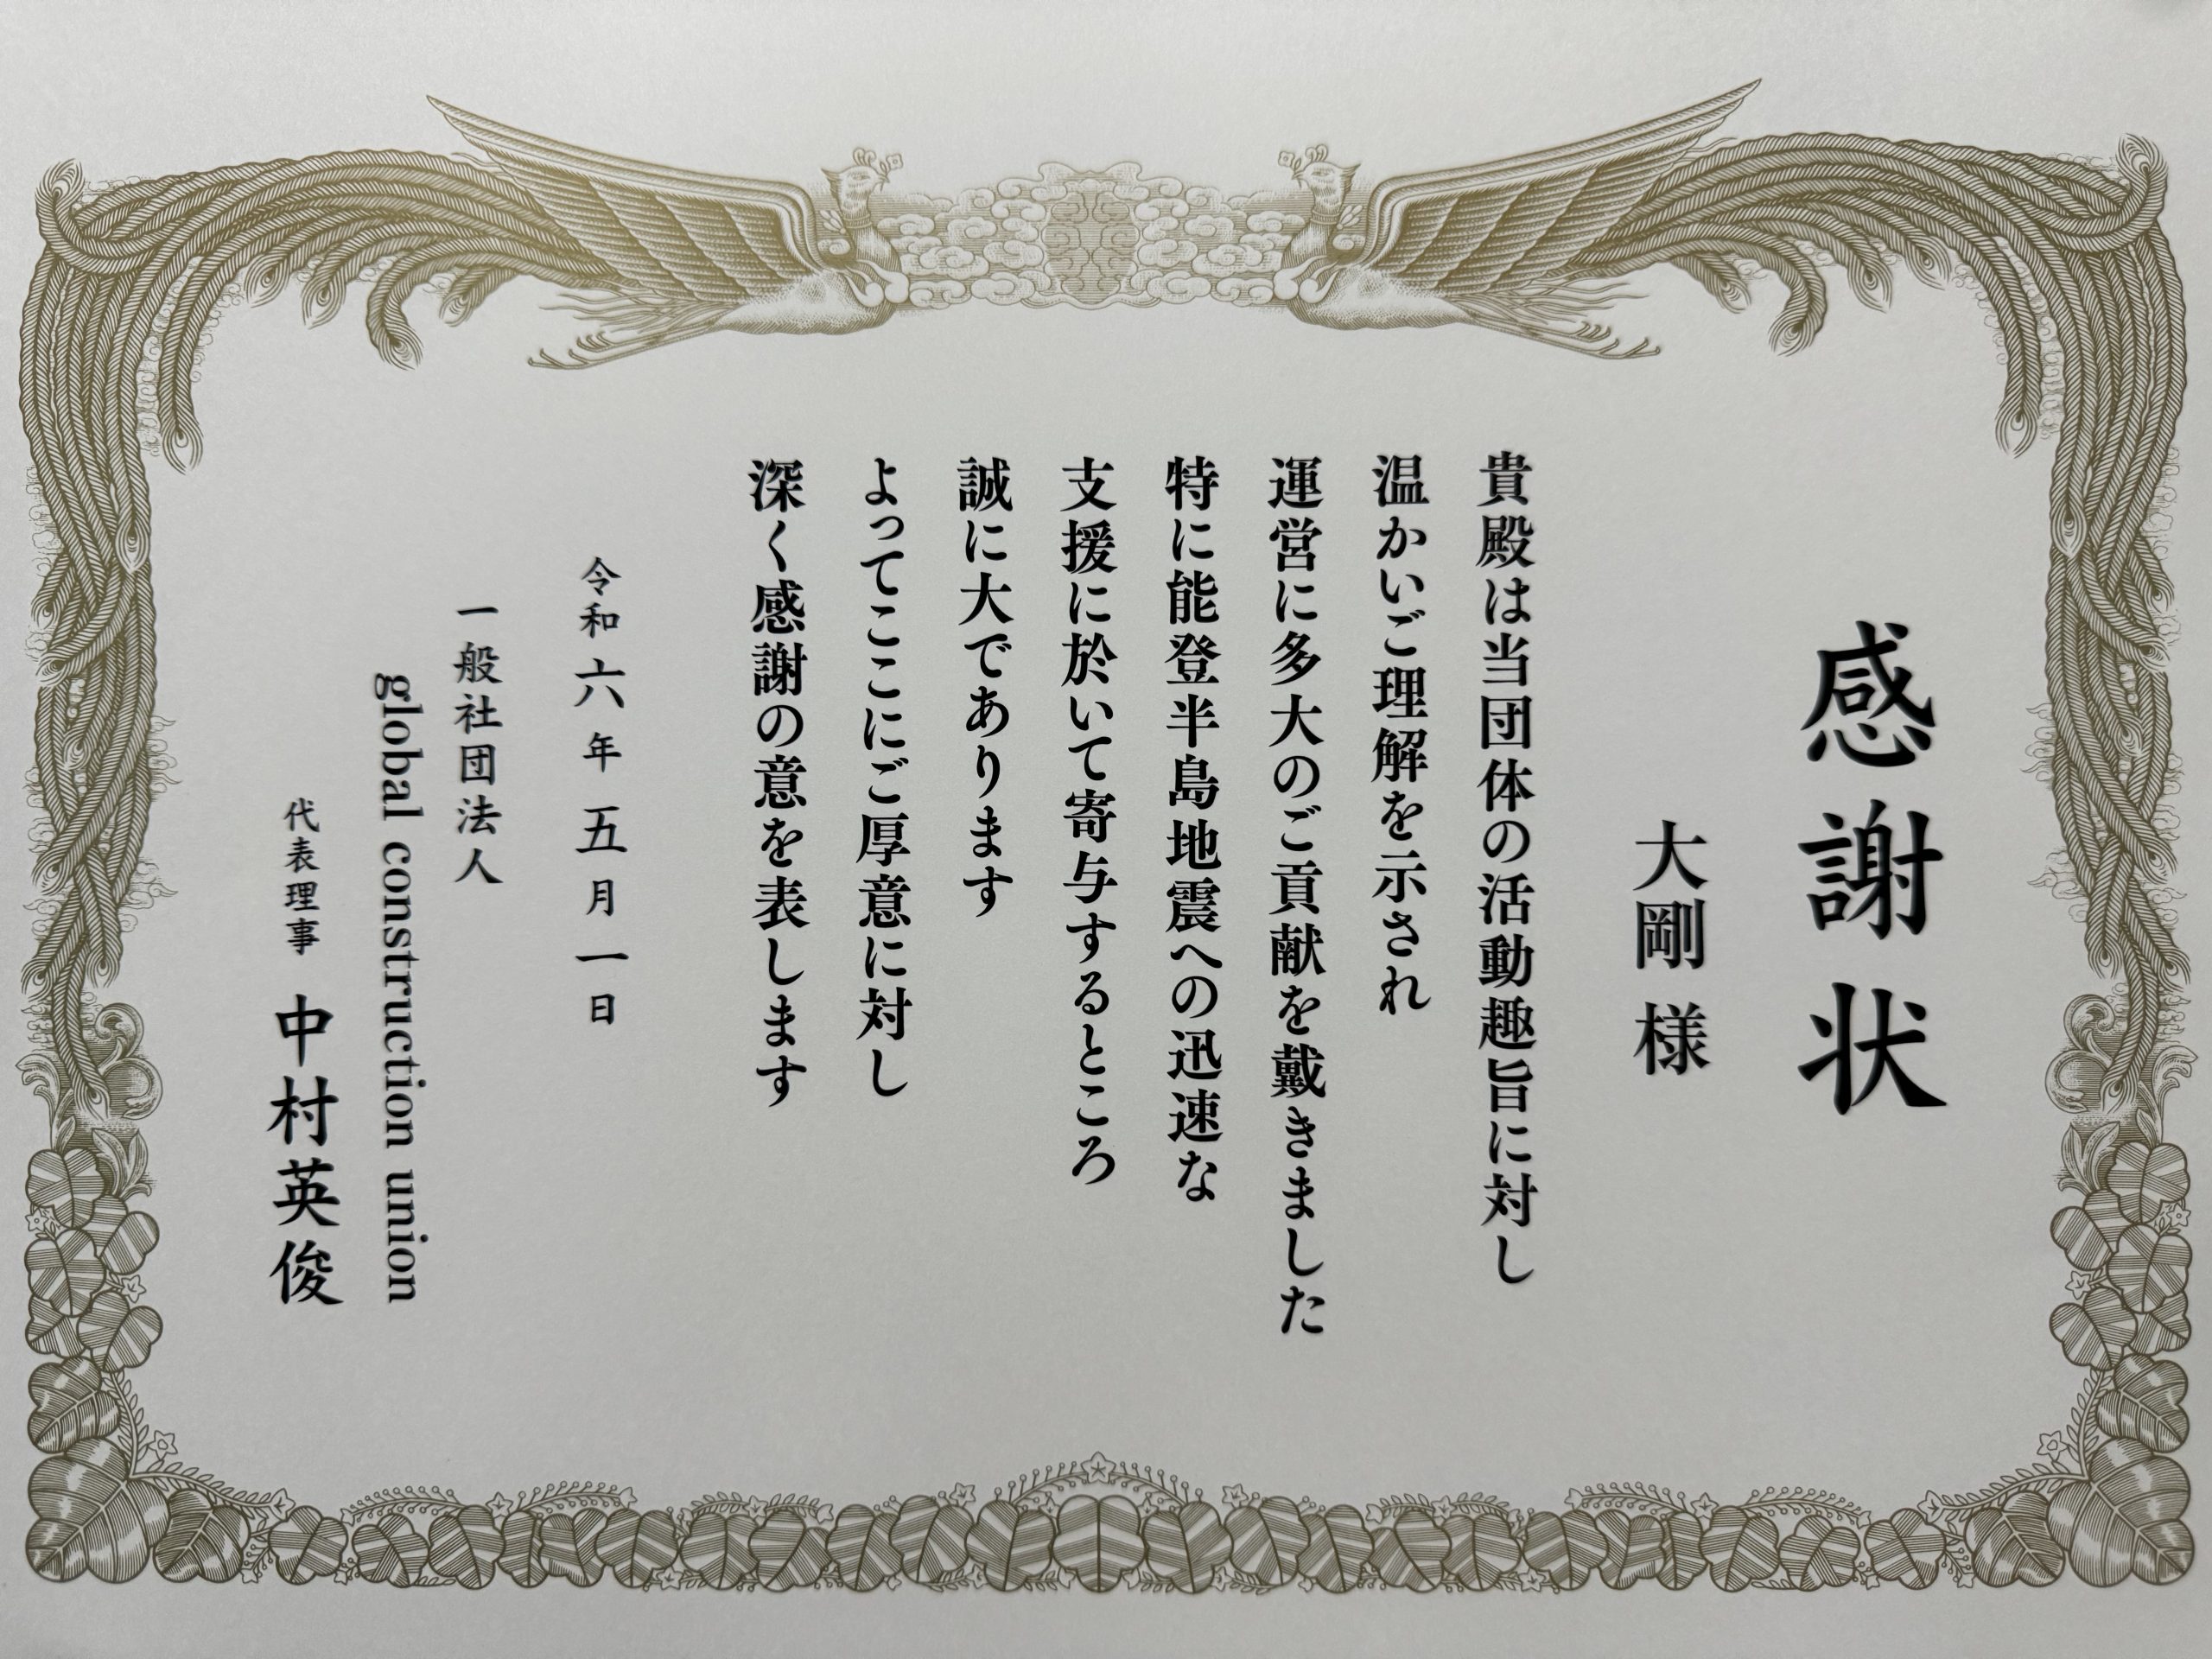 感謝状
大剛 様
貴殿は当団体の活動趣旨に対し
温かいご理解を示され
運営に多大のご貢献を戴きました
特に能登半島地震への迅速な
支援に於いて寄与するところ
誠に大であります
よってここにご厚意に対し
深く感謝の意を表します
令和六年五月一日
一般社団法人
global construction union
代表理事 中村英俊